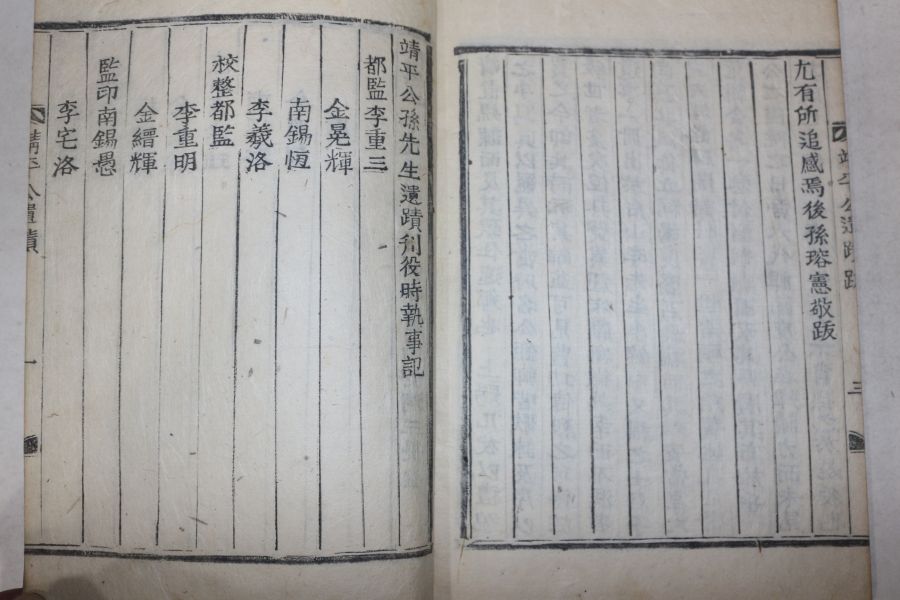 尤有所追感焉後孫瑢憲敬跋
靖平公遺蹟跋
三
靖平公孫先生遺蹟刋役時執事記
都監李重三
金晃輝
南錫恆
李羲洛
校整都監
李重明
金縉輝
監印南錫愚
李宅洛
靖平公遺蹟
一